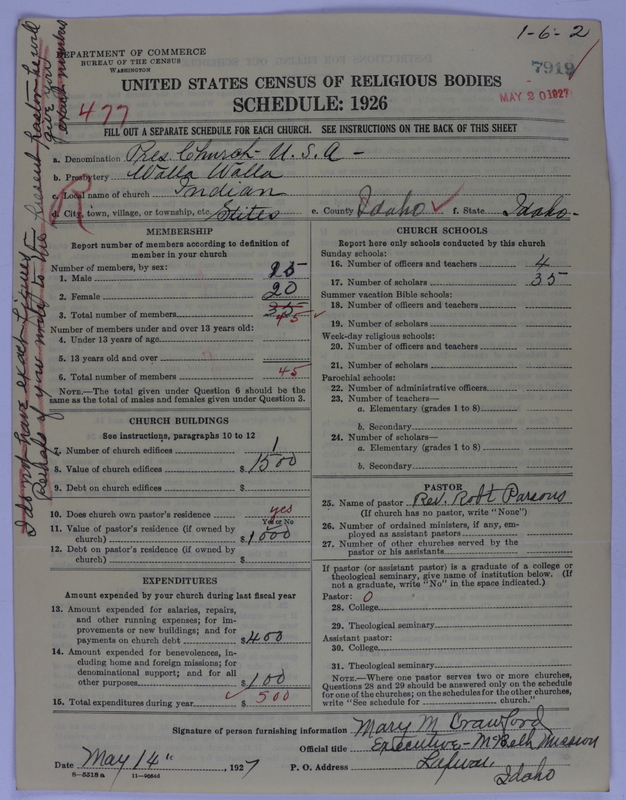 1-6-2
DEPARTMENT OF COMMERCE
BUREAU OF THE CENSUS
WASHINGTON
7919
MAY 20 1927
477
UNITED STATES CENSUS OF RELIGIOUS BODIES
SCHEDULE: 1926
FILL OUT A SEPARATE SCHEDULE FOR EACH CHURCH. SEE INSTRUCTIONS ON THE BACK OF THIS SHEET
a. Denomination Pres. Church - U.S.A -
b. Presbytery Walla Walla
c. Local name of church Indian
d. City, town, village, or township, etc. Stites e. County Idaho f. State Idaho -
MEMBERSHIP
Report number of members according to definition of
member in your church
Number of members, by sex:
1. Male 25
2. Female 20
3. Total number of members 35 45
Number of members under and over 13 years old:
4. Under 13 years of age
5. 13 years old and over
6. Total number of members 45
NOTE.—The total given under Question 6 should be the
same as the total of males and females given under Question 3.
CHURCH BUILDINGS
See instructions, paragraphs 10 to 12
7. Number of church edifices 1
8. Value of church edifices $1500
9. Debt on church edifices $
10. Does church own pastor's residence yes
Yes or No
11. Value of pastor's residence (if owned by
church) $1000
12. Debt on pastor's residence (if owned by
church) $
EXPENDITURES
Amount expended by your church during last fiscal year
13. Amount expended for salaries, repairs,
and other running expenses; for im-
provements or new buildings; and for
payments on church debt $400
14. Amount expended for benevolences, in-
cluding home and foreign missions; for
denominational support; and for all
other purposes $100
15. Total expenditures during year $500
CHURCH SCHOOLS
Report here only schools conducted by this church
Sunday schools:
16. Number of officers and teachers 4
17. Number of scholars 35
Summer vacation Bible schools:
18. Number of officers and teachers
19. Number of scholars
Week-day religious schools:
20. Number of officers and teachers
21. Number of scholars
Parochial schools:
22. Number of administrative officers
23. Number of teachers—
a. Elementary (grades 1 to 8)
b. Secondary
24. Number of scholars—
a. Elementary (grades 1 to 8)
b. Secondary
PASTOR
25. Name of pastor Rev. Robt Parsons
(If church has no pastor, write "None")
26. Number of ordained ministers, if any, em-
ployed as assistant pastors
27. Number of other churches served by the
pastor or his assistants
If pastor (or assistant pastor) is a graduate of a college or
theological seminary, give name of institution below. (If
not a graduate, write "No" in the space indicated.)
Pastor: 0
28. College
29. Theological seminary
Assistant pastor:
30. College
31. Theological seminary
NOTE.—Where one pastor serves two or more churches,
Questions 28 and 29 should be answered only on the schedule
for one of the churches; on the schedules for the other churches,
write "See schedule for church."
Signature of person furnishing information Mary M. Crawford
Official title Executive - McBeth Mission
Date May 14", 1927 P. O. Address Lapwai,
Idaho
8-5318a 11-9664d
I do not have exact figures.
Perhaps if you write to the present pastor he will
give you
exact numbers